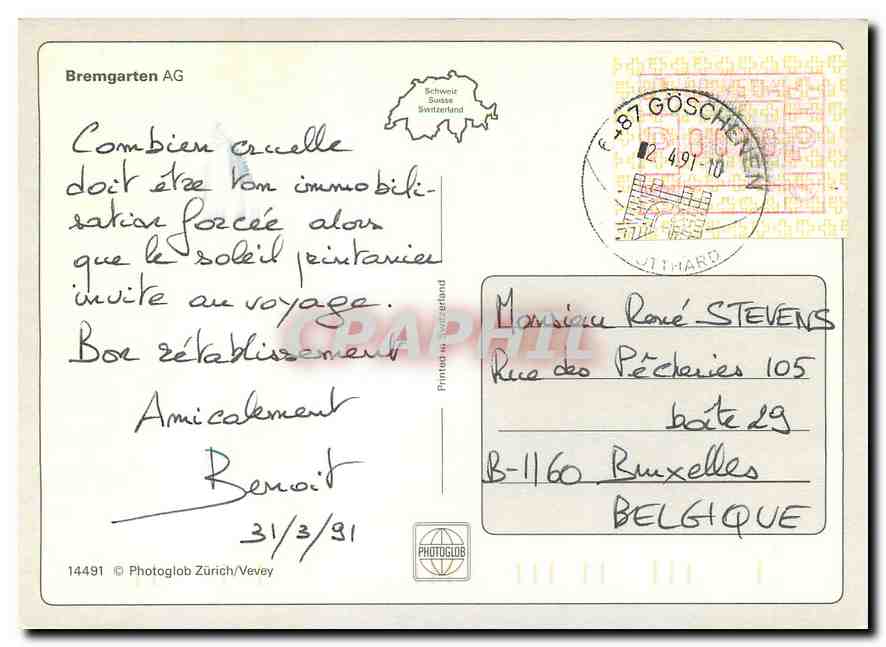 Bremgarten AG
Schweiz
Suisse
Switzerland
6487 GÖSCHENEN
2. 4.91-10
GOTTHARD
Combien cruelle
doit être ton immobili-
sation forcée alors
que le soleil printanier
invite au voyage.
Bon rétablissement
Amicalement
Benoit
31/3/91
Printed in Switzerland
CPAPHIL
Monsieur René STEVENS
Rue des Pêcheries 105
boîte 29
B-1160 Bruxelles
BELGIQUE
PHOTOGLOB
14491 © Photoglob Zürich/Vevey